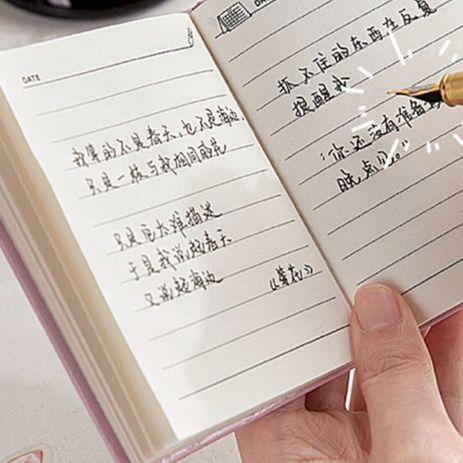 DATE
我等的不是春天,也不是海边,
只是一枝与我相同的花
只是它太难描述
于是我说起春天
又说起海边 《等花》
抓不住的东西在反复
提醒我
:你还没有准备
晚点见。